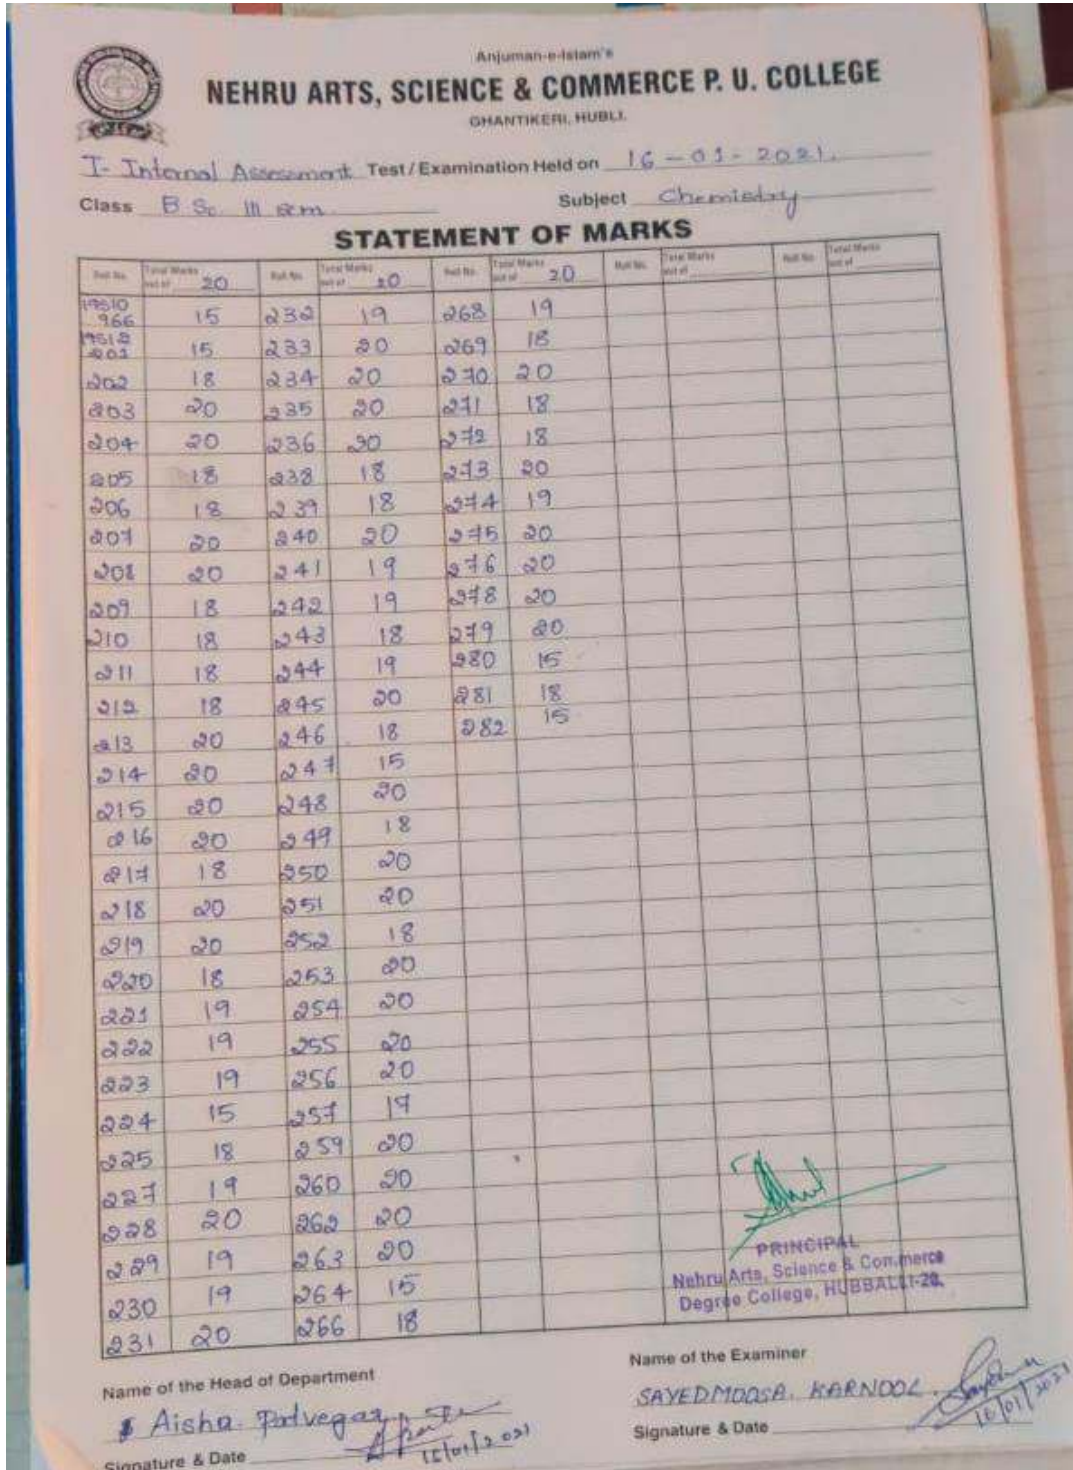 Anjuman-e-Islam's
NEHRU ARTS, SCIENCE & COMMERCE P. U. COLLEGE
GHANTIKERI, HUBLI.
I- Internal Assessment Test / Examination Held on 16-01-2021.
Class B.Sc III sem Subject Chemistry
STATEMENT OF MARKS
Roll No. Total Marks out of 20 Roll No. Total Marks out of 20 Roll No. Total Marks out of 20 Roll No. Total Marks out of Roll No. Total Marks out of
19510
966 15 232 19 268 19
19512
201 15 233 20 269 18
202 18 234 20 270 20
203 20 235 20 271 18
204 20 236 20 272 18
205 18 238 18 273 20
206 18 239 18 274 19
207 20 240 20 275 20
208 20 241 19 276 20
209 18 242 19 278 20
210 18 243 18 279 20
211 18 244 19 280 15
212 18 245 20 281 18
213 20 246 18 282 15
214 20 247 15
215 20 248 20
216 20 249 18
217 18 250 20
218 20 251 20
219 20 252 18
220 18 253 20
221 19 254 20
222 19 255 20
223 19 256 20
224 15 257 19
225 18 259 20
227 19 260 20
228 20 262 20
229 19 263 20
230 19 264 15
231 20 266 18
PRINCIPAL
Nehru Arts, Science & Commerce
Degree College, HUBBALLI-20.
Name of the Head of Department Name of the Examiner
Aisha. Patvegar SAYEDMOOSA. KARNOOL
Signature & Date 16/01/2021 Signature & Date 16/01/2021